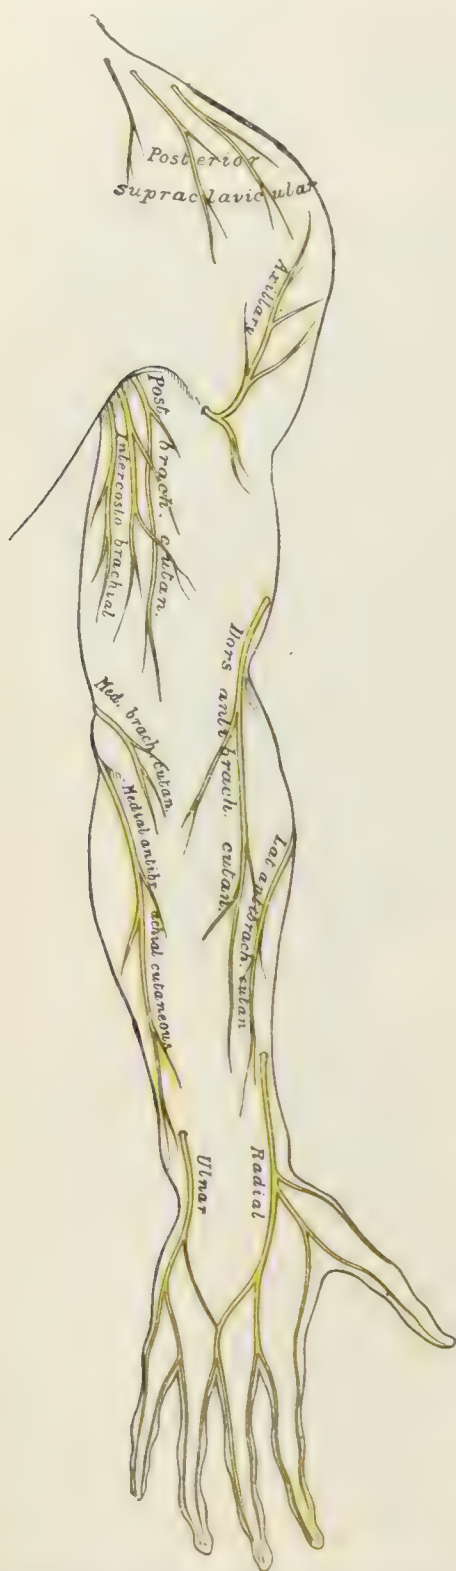 Posterior
supraclavicular
Axillary
Post. brach. cutan.
Intercosto brachial
Med. brach. cutan.
Dors anti brach. cutan.
Medial antibrachial cutaneous
Lat antibrach. cutan
Ulnar
Radial